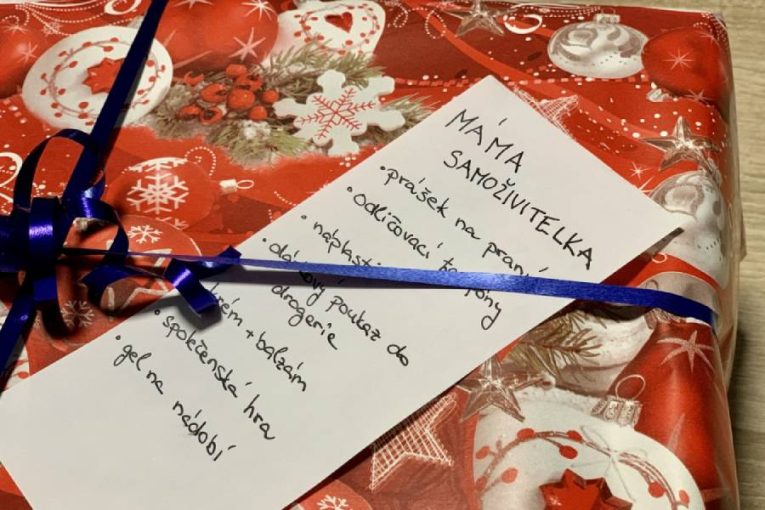 MÁMA
SAMOŽIVITELKA
• prášek na praní
• odličovací tampony
• náplasti
• dárkový poukaz do
drogerie
• krém + balzám
• společenská hra
• gel na nádobí